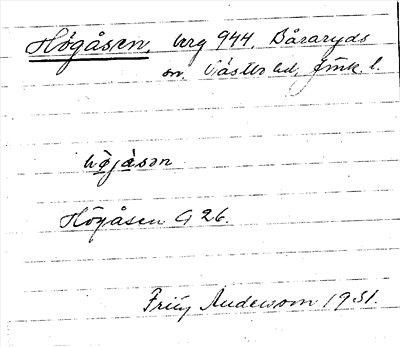 Högåsen, berg 944, Båraryds
sn. Västbo hd, Jönk. l.
hø̀jásən
Högåsen G 26.
Früy Anderson 1931.